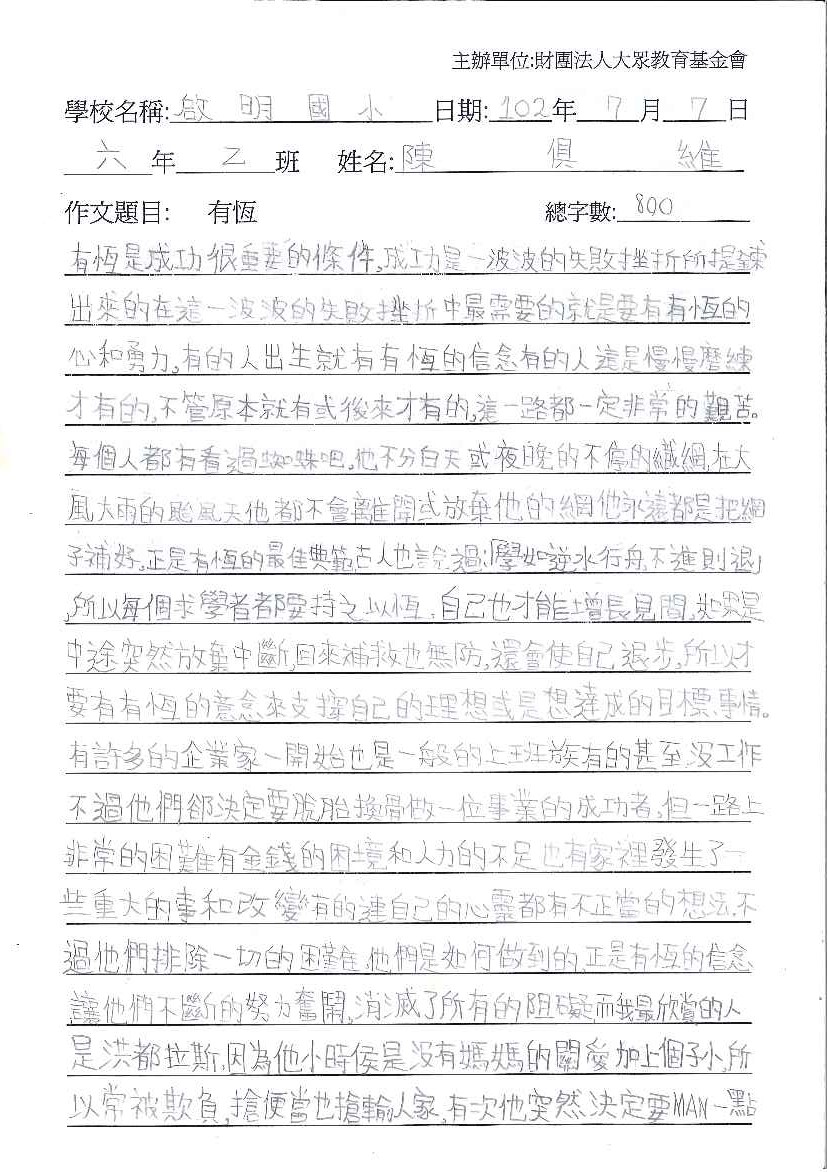 主辦單位:財團法人大眾教育基金會
學校名稱:啟明國小 日期:102年7月7日
六年乙班 姓名:陳俱維
作文題目: 有恆 總字數:800
有恆是成功很重要的條件,成功是一波波的失敗挫折所提鍊
出來的在這一波波的失敗挫折中最需要的就是要有有恆的
心和勇力,有的人出生就有有恆的信念有的人這是慢慢磨練
才有的,不管原本就有或後來才有的,這一路都一定非常的艱苦。
每個人都有看過蜘蛛吧,他不分白天或夜晚的不停的織網,在大
風大雨的颱風天他都不會離開或放棄他的網他永遠都是把網
子補好,正是有恆的最佳典範古人也說過:「學如逆水行舟不進則退」
,所以每個求學者都要持之以恆,自己也才能增長見聞,如果是
中途突然放棄中斷,回來補救也無防,還會使自己退步,所以才
要有有恆的意念來支撐自己的理想或是想達成的目標事情。
有許多的企業家一開始也是一般的上班族有的甚至沒工作
不過他們卻決定要脫胎換骨做一位事業的成功者,但一路上
非常的困難有金錢的困境和人力的不足也有家裡發生了一
些重大的事和改變有的連自己的心靈都有不正當的想法,不
過他們排除一切的困難,他們是如何做到的,正是有恆的信念
讓他們不斷的努力奮鬥,消滅了所有的阻礙而我最欣賞的人
是洪都拉斯,因為他小時侯是沒有媽媽的關愛加上個子小,所
以常被欺負,搶便當也搶輸人家,有次他突然決定要MAN一點